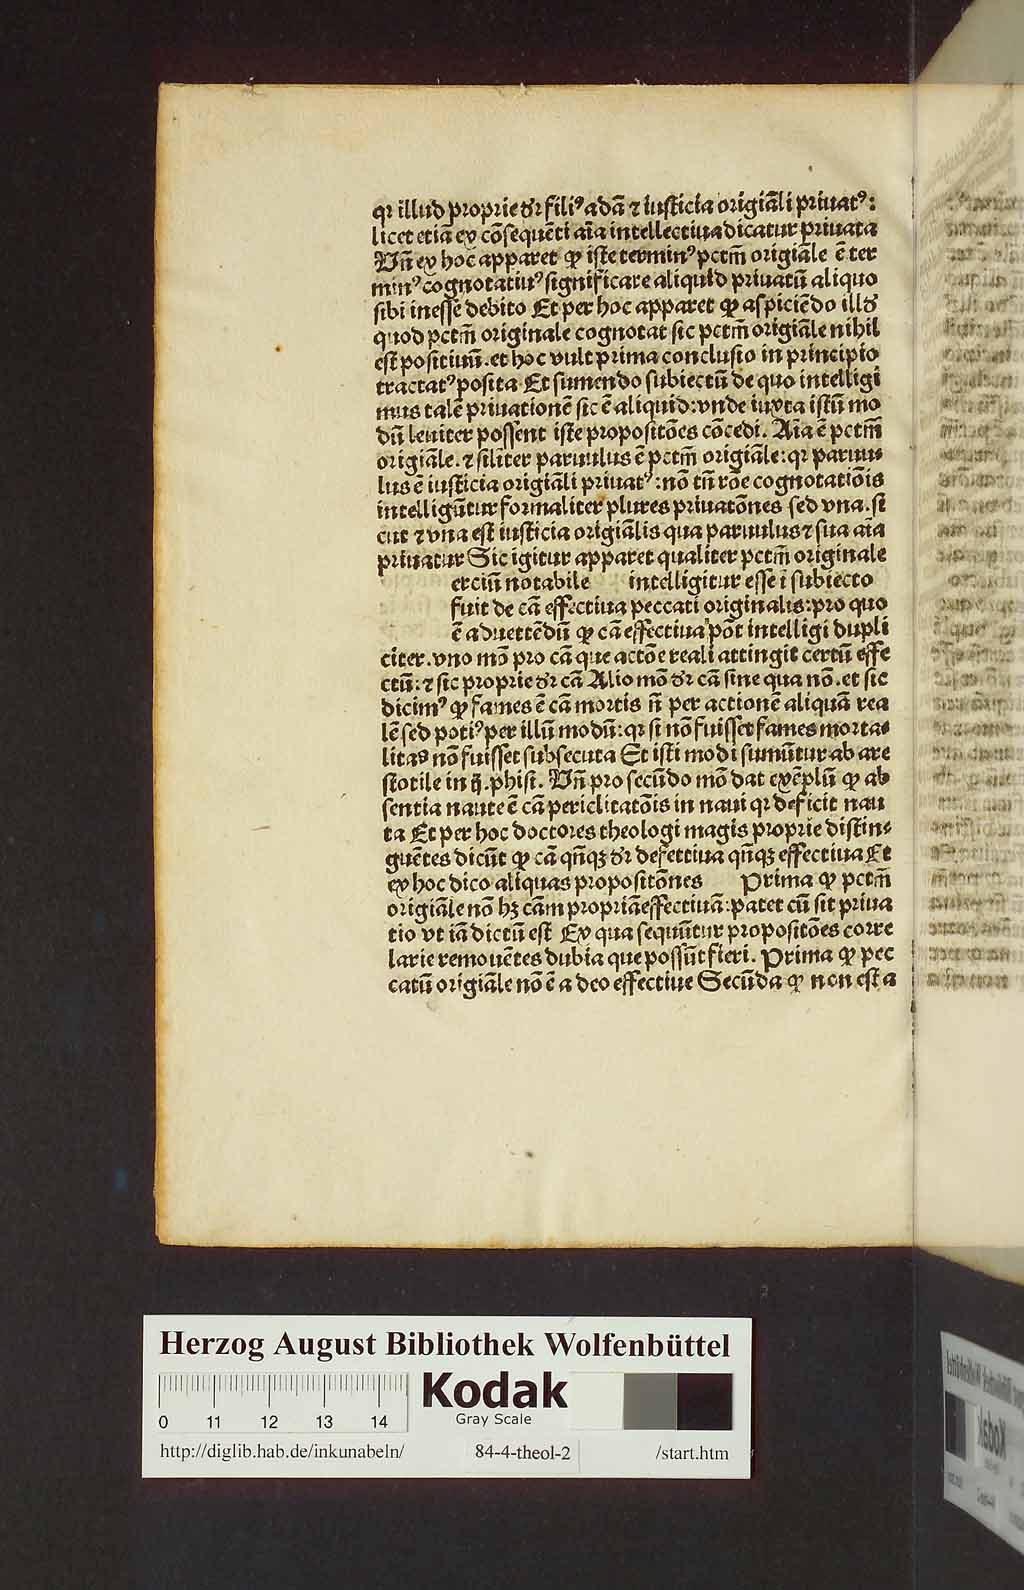 qꝛ illud proprie dꝛ filiꝰ adā ⁊ iusticia origiāli priuatꝰ:
licet etiā ex cōsequēti aīa intellectiua dicatur priuata
Vn̄ ex hoc apparet ꝙ iste terminꝰ pctm̄ origiāle ē ter
minꝰ cognotatiuꝰ significare aliquid priuatū aliquo
sibi inesse debito Et per hoc apparet ꝙ aspiciēdo illd
quod pctm̄ originale cognotat sic pctm̄ origiāle nihil
est positiuū. et hoc vult prima conclusio in principio
tractatꝰ posita Et sumendo subiectū de quo intelligi
mus talē priuationē sic ē aliquid: vnde iuxta istū mo
dū leuiter possent iste propositōes cōcedi. Aīa ē pctm̄
origiāle. ⁊ silīter paruulus ē pctm̄ origiāle: qꝛ paruu⸗
lus ē iusticia origiāli priuatꝰ: nō tn̄ rōe cognotatiōis
intelligūtur formaliter plures priuatōnes sed vna. si
cut ⁊ vna est iusticia origiālis qua paruulus ⁊ sua aīa
priuatur Sic igitur apparet qualiter pctm̄ originale
erciū notabile intelligitur esse ī subiecto
fuit de cā effectiua peccati originalis: pro quo
ē aduettēdū ꝙ cā effectiua pōt intelligi dupli
citer. vno mō pro cā que actōe reali attingit certū effe
ctū: ⁊ sic proprie dꝛ cā Alio mō dꝛ cā sine qua nō. et sic
dicimꝰ ꝙ fames ē cā mortis n̄ per actionē aliquā rea
lē sed potiꝰ per illū modū: qꝛ si nō fuisset fames morta⸗
litas nō fuisset subsecuta Et isti modi sumūtur ab are
stotile in ij. phisi. Vn̄ pro secūdo mō dat exēplū ꝙ ab
sentia naute ē cā periclitatōis in naui qꝛ deficit nau
ta Et per hoc doctores theologi magis proprie distin⸗
guētes dicūt ꝙ cā qn̄qꝫ dꝛ defettiua qn̄qꝫ effectiua Et
ex hoc dico aliquas propositōnes Prima ꝙ pctm̄
origiāle nō hꝫ cām propriā effectiuā: patet cū sit priua
tio vt iā dictū est Ex qua sequūtur propositōes corre
larie remouētes dubia que possūt fieri. Prima ꝙ pec
catū origiāle nō ē a deo effectiue Secūda ꝙ non est a
Herzog August Bibliothek Wolfenbüttel
Kodak
Gray Scale
0 11 12 13 14
http://diglib.hab.de/inkunabeln/ 84-4-theol-2 /start.htm